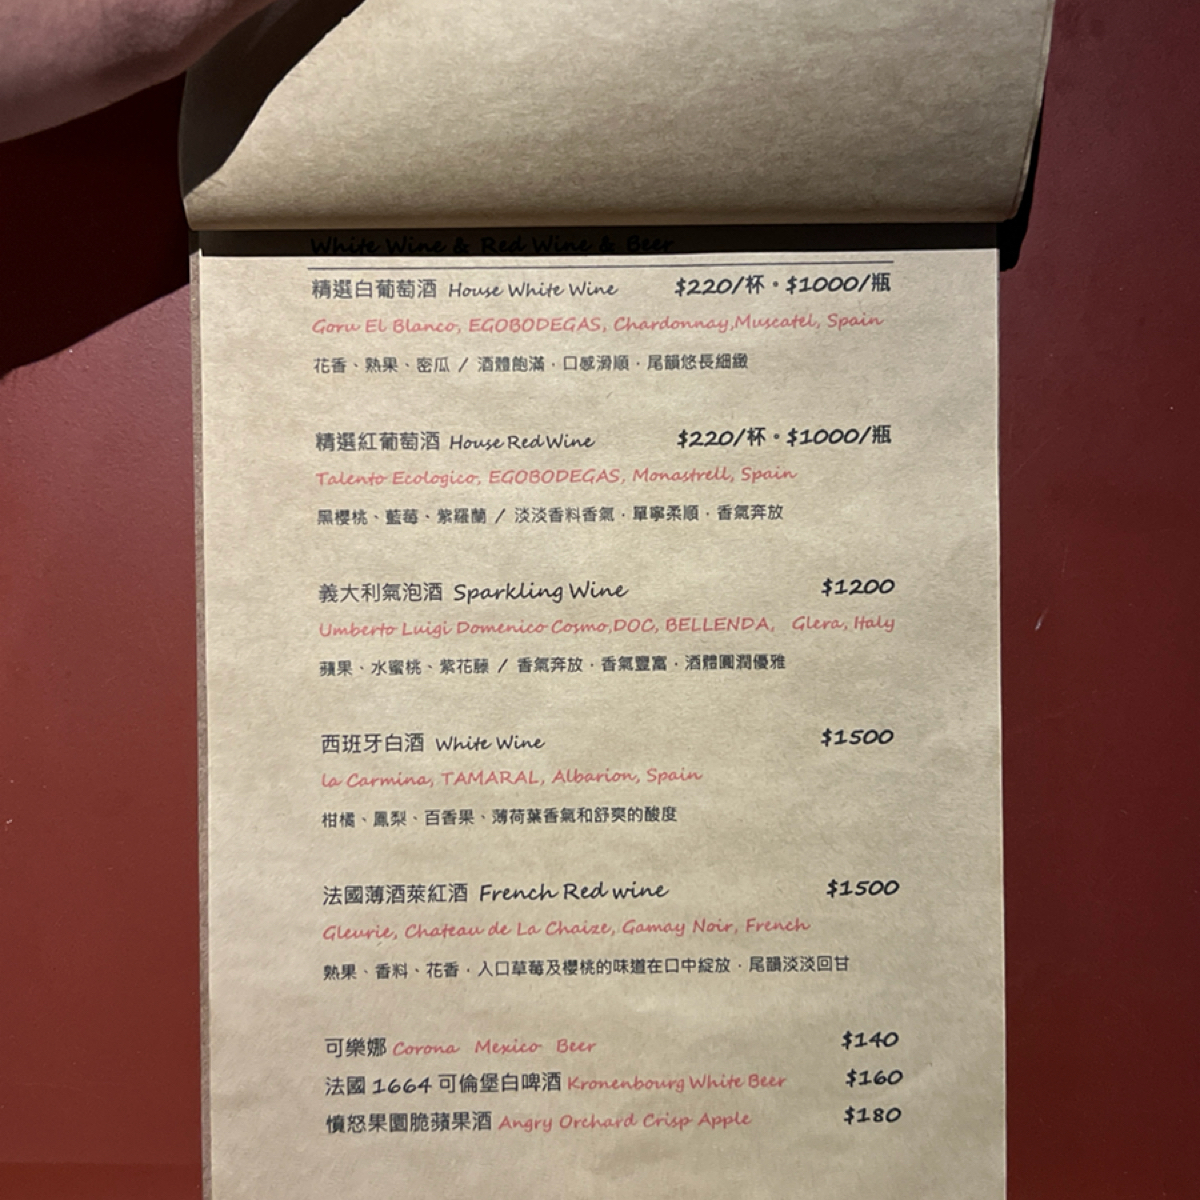 White Wine & Red Wine & Beer
精選白葡萄酒 House White Wine $220/杯。$1000/瓶
Goru El Blanco, EGOBODEGAS, Chardonnay,Muscatel, Spain
花香、熟果、密瓜 / 酒體飽滿．口感滑順．尾韻悠長細緻
精選紅葡萄酒 House Red Wine $220/杯。$1000/瓶
Talento Ecologico, EGOBODEGAS, Monastrell, Spain
黑櫻桃、藍莓、紫羅蘭 / 淡淡香料香氣．單寧柔順．香氣奔放
義大利氣泡酒 Sparkling Wine $1200
Umberto Luigi Domenico Cosmo,DOC, BELLENDA, Glera, Italy
蘋果、水蜜桃、紫花藤 / 香氣奔放．香氣豐富．酒體圓潤優雅
西班牙白酒 White Wine $1500
la Carmina, TAMARAL, Albarion, Spain
柑橘、鳳梨、百香果、薄荷葉香氣和舒爽的酸度
法國薄酒萊紅酒 French Red wine $1500
Gleurie, Chateau de La Chaize, Gamay Noir, French
熟果、香料、花香．入口草莓及櫻桃的味道在口中綻放．尾韻淡淡回甘
可樂娜 Corona Mexico Beer $140
法國 1664 可倫堡白啤酒 Kronenbourg White Beer $160
憤怒果園脆蘋果酒 Angry Orchard Crisp Apple $180